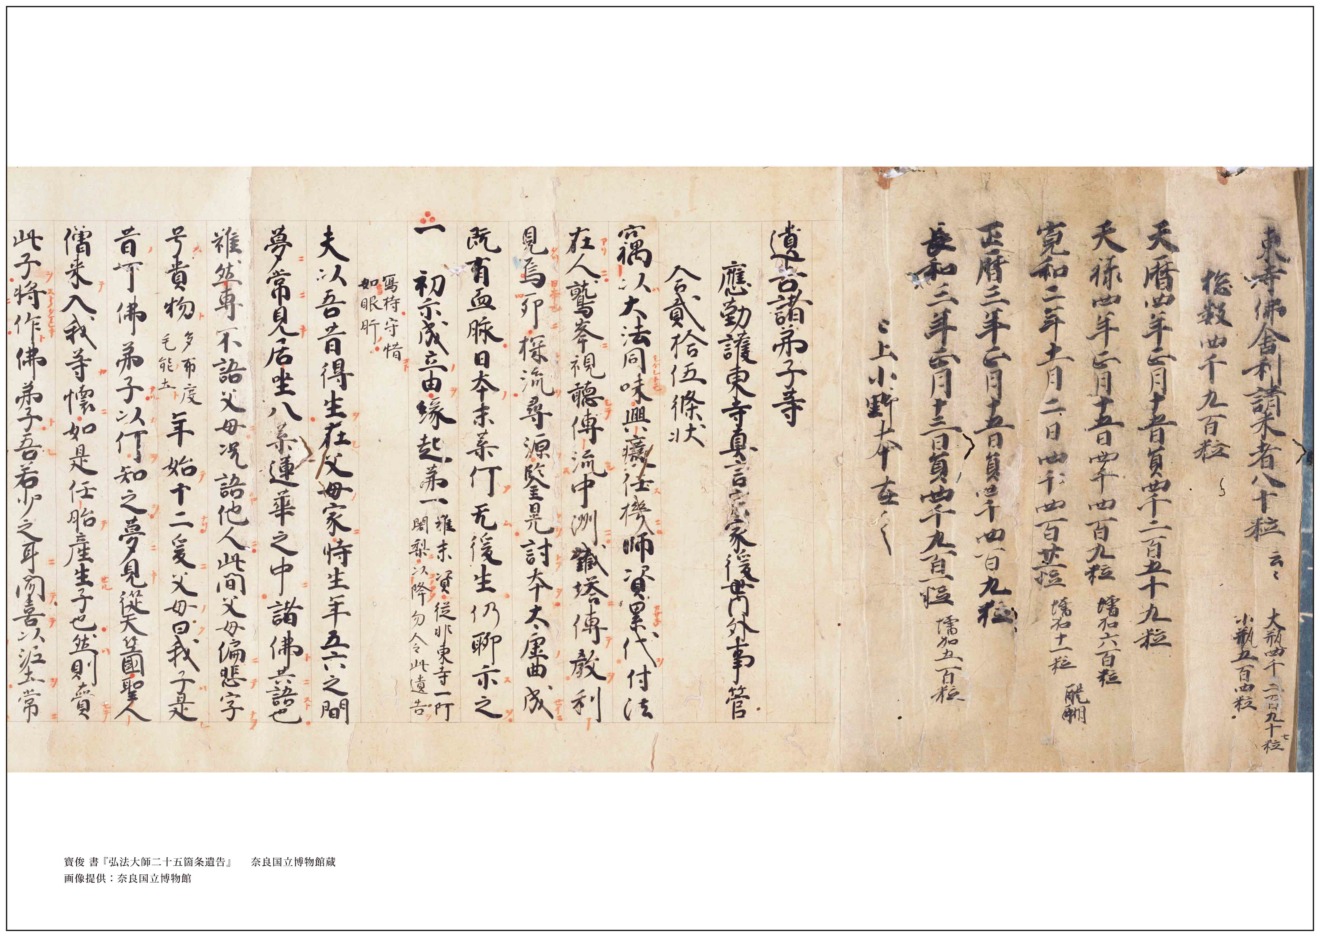 東寺佛舎利請来者八十粒 云々
大瓶四千二百九十七粒
小瓶五百四粒
惣数四千九百粒
天暦四年正月十五日員四千二百五十九粒
天禄四年正月十五日四千四百九粒 壖石六百粒
寛和二年十一月二日四千四百廿粒 壖石十一粒 醍醐
正暦三年正月十五日員四千四百九粒
長和三年正月十三日員四千九百一粒 壖石五百粒
已上小野本在之
遺告諸弟子等
應勤護東寺真言宗家後世内外事管
合貳拾伍條状
竊以大法同味興癈任機師資累代付法
在人鷲峯視聽傳流中洲鐵塔傳教利
見焉卯探流尋源鑒晃討本太虚曲成
既有血脉日本末葉何无後生仍聊示之
一 初示成立由縁起第一 雖末資従非東寺一阿
闍梨以降勿令此遺告
寫持守惜
如眼肝
夫以吾昔得生在父母家時生年五六之間
夢常見居坐八葉蓮華之中諸佛共語也
雖然專不語父母况語他人此間父母偏悲字
号貴物 多布度
毛能土 年始十二爰父母曰我子是
昔可佛弟子以何知之夢見従天竺國聖人
僧来入我等懷如是任胎産生子也然則賣
此子将作佛弟子吾若少之耳聞喜以埿土常
寶俊 書『弘法大師二十五箇条遺告』 奈良国立博物館蔵
画像提供：奈良国立博物館